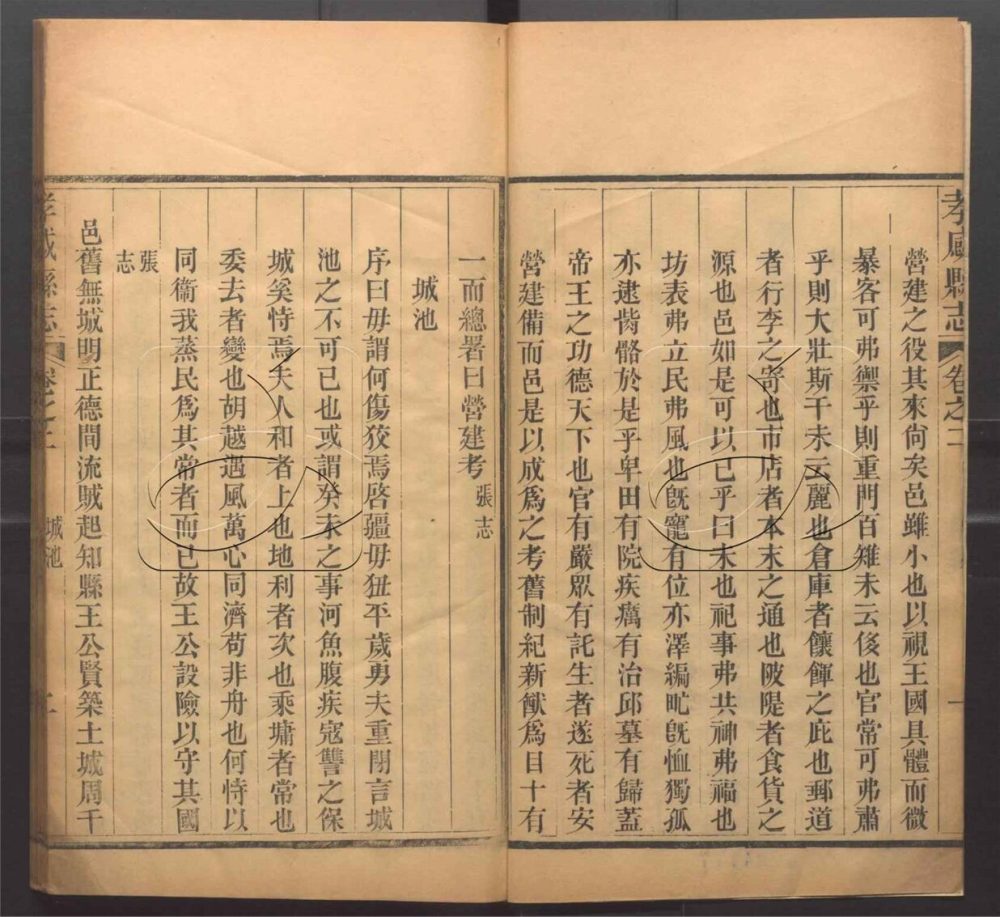 孝感縣志 卷之二 一
營建之役其來尙矣邑雖小也以視王國具體而微
暴客可弗禦乎則重門百雉未云侈也官常可弗肅
乎則大壯斯干未云麗也倉庫者饟餫之庇也郵道
者行李之寄也市店者本末之通也陂隄者食貨之
源也邑如是可以已乎曰未也祀事弗共神弗福也
坊表弗立民弗風也旣寵有位亦澤編氓旣恤獨孤
亦逮胔骼於是乎卑田有院疾癘有治邱墓有歸蓋
帝王之功德天下也官有嚴眾有託生者遂死者安
營建備而邑是以成爲之考舊制紀新猷爲目十有
一而總署曰營建考張志
城池
序曰毋謂何傷狡焉啓疆毋狃平歲勇夫重閉言城
池之不可已也或謂癸未之事河魚腹疾寇讐之保
城奚恃焉夫人和者上也地利者次也乘墉者常也
委去者變也胡越遇風萬心同濟苟非舟也何恃以
同衞我蒸民爲其常者而已故王公設險以守其國
張志
邑舊無城明正德間流賊起知縣王公賢築土城周千
孝感縣志 卷之二 城池